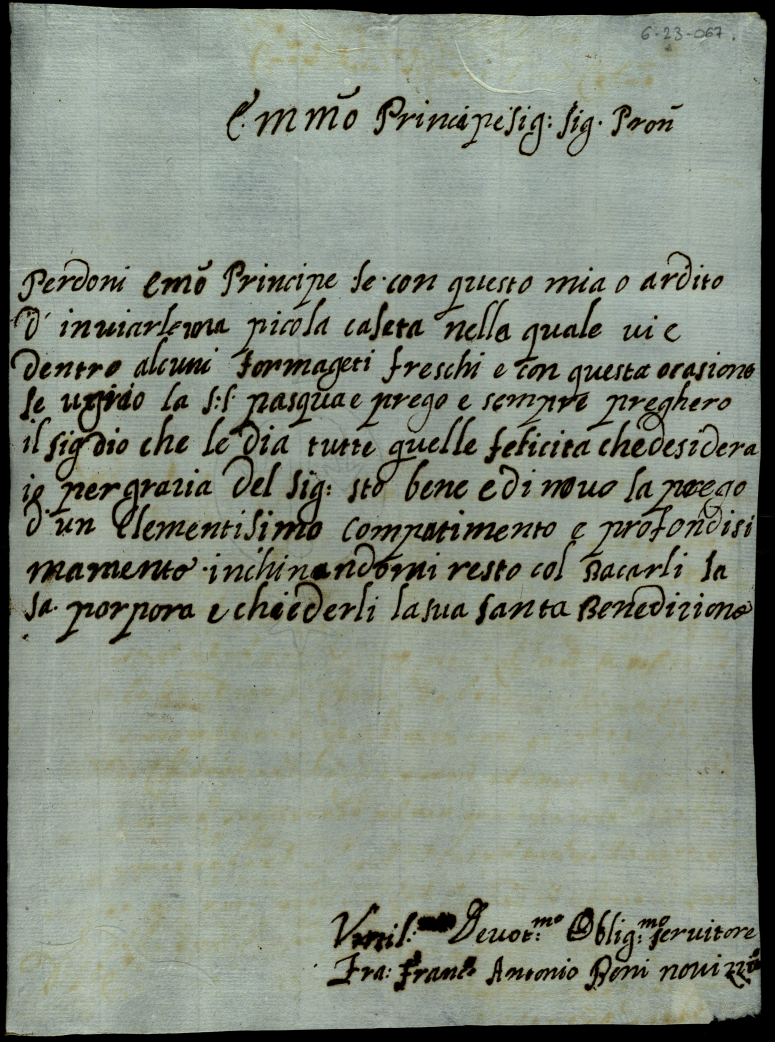 6-23-067.
E.mmõ Principe Sig: Sig. Proñ
Perdoni Emõ Principe se con questo mia o ardito
d' inuiarle una picola caseta nella quale ui e
dentro alcuni formageti freschi e con questa ocasione
le la S:S: pasqua e prego e sempre preghero
il Sig dio che le dia tutte quelle felicita che desidera
io per grazia del Sig: sto bene e di nouo la prego
d'un Clementisimo compatimento e profondisi
mamente inchinandomi resto col Bacarli la
Sa. porpora e chiederli la sua Santa Benedizione
Vmil:mo Deuot:mo Oblig:mo seruitore
Fra: Fran:o Antonio Beni nouizzo